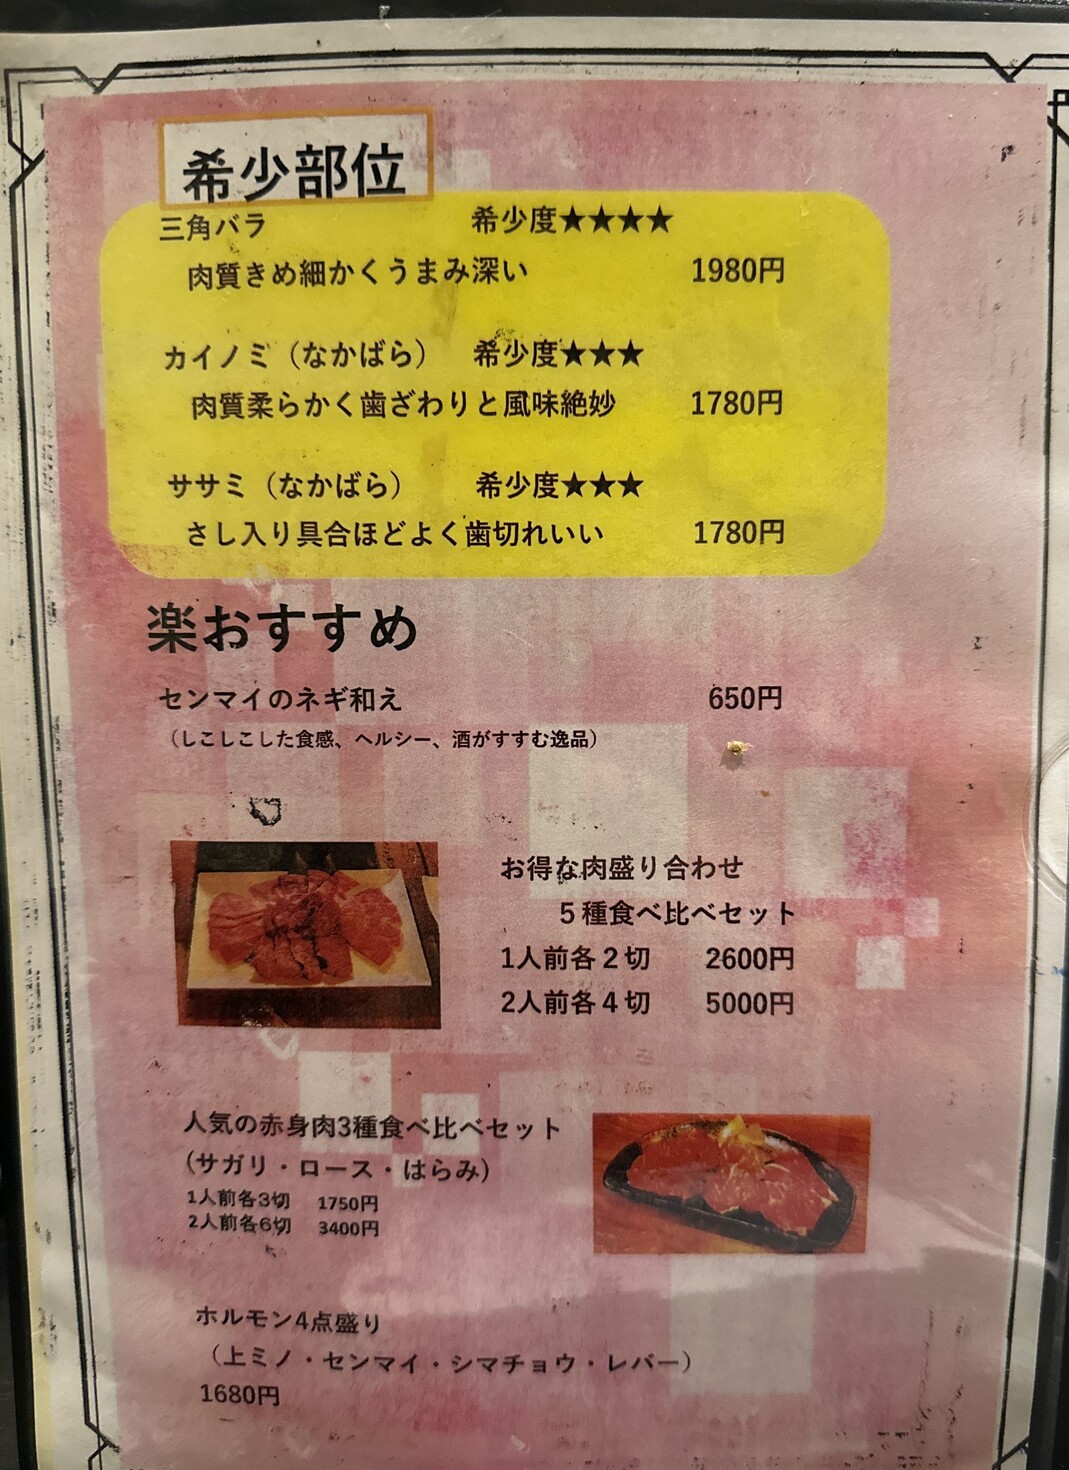 希少部位
三角バラ 希少度★★★★
肉質きめ細かくうまみ深い 1980円
カイノミ（なかばら） 希少度★★★
肉質柔らかく歯ざわりと風味絶妙 1780円
ササミ（なかばら） 希少度★★★
さし入り具合ほどよく歯切れいい 1780円
楽おすすめ
センマイのネギ和え 650円
（しこしこした食感、ヘルシー、酒がすすむ逸品）
お得な肉盛り合わせ
５種食べ比べセット
1人前各２切 2600円
2人前各４切 5000円
人気の赤身肉3種食べ比べセット
(サガリ・ロース・はらみ)
1人前各3切 1750円
2人前各6切 3400円
ホルモン4点盛り
（上ミノ・センマイ・シマチョウ・レバー）
1680円